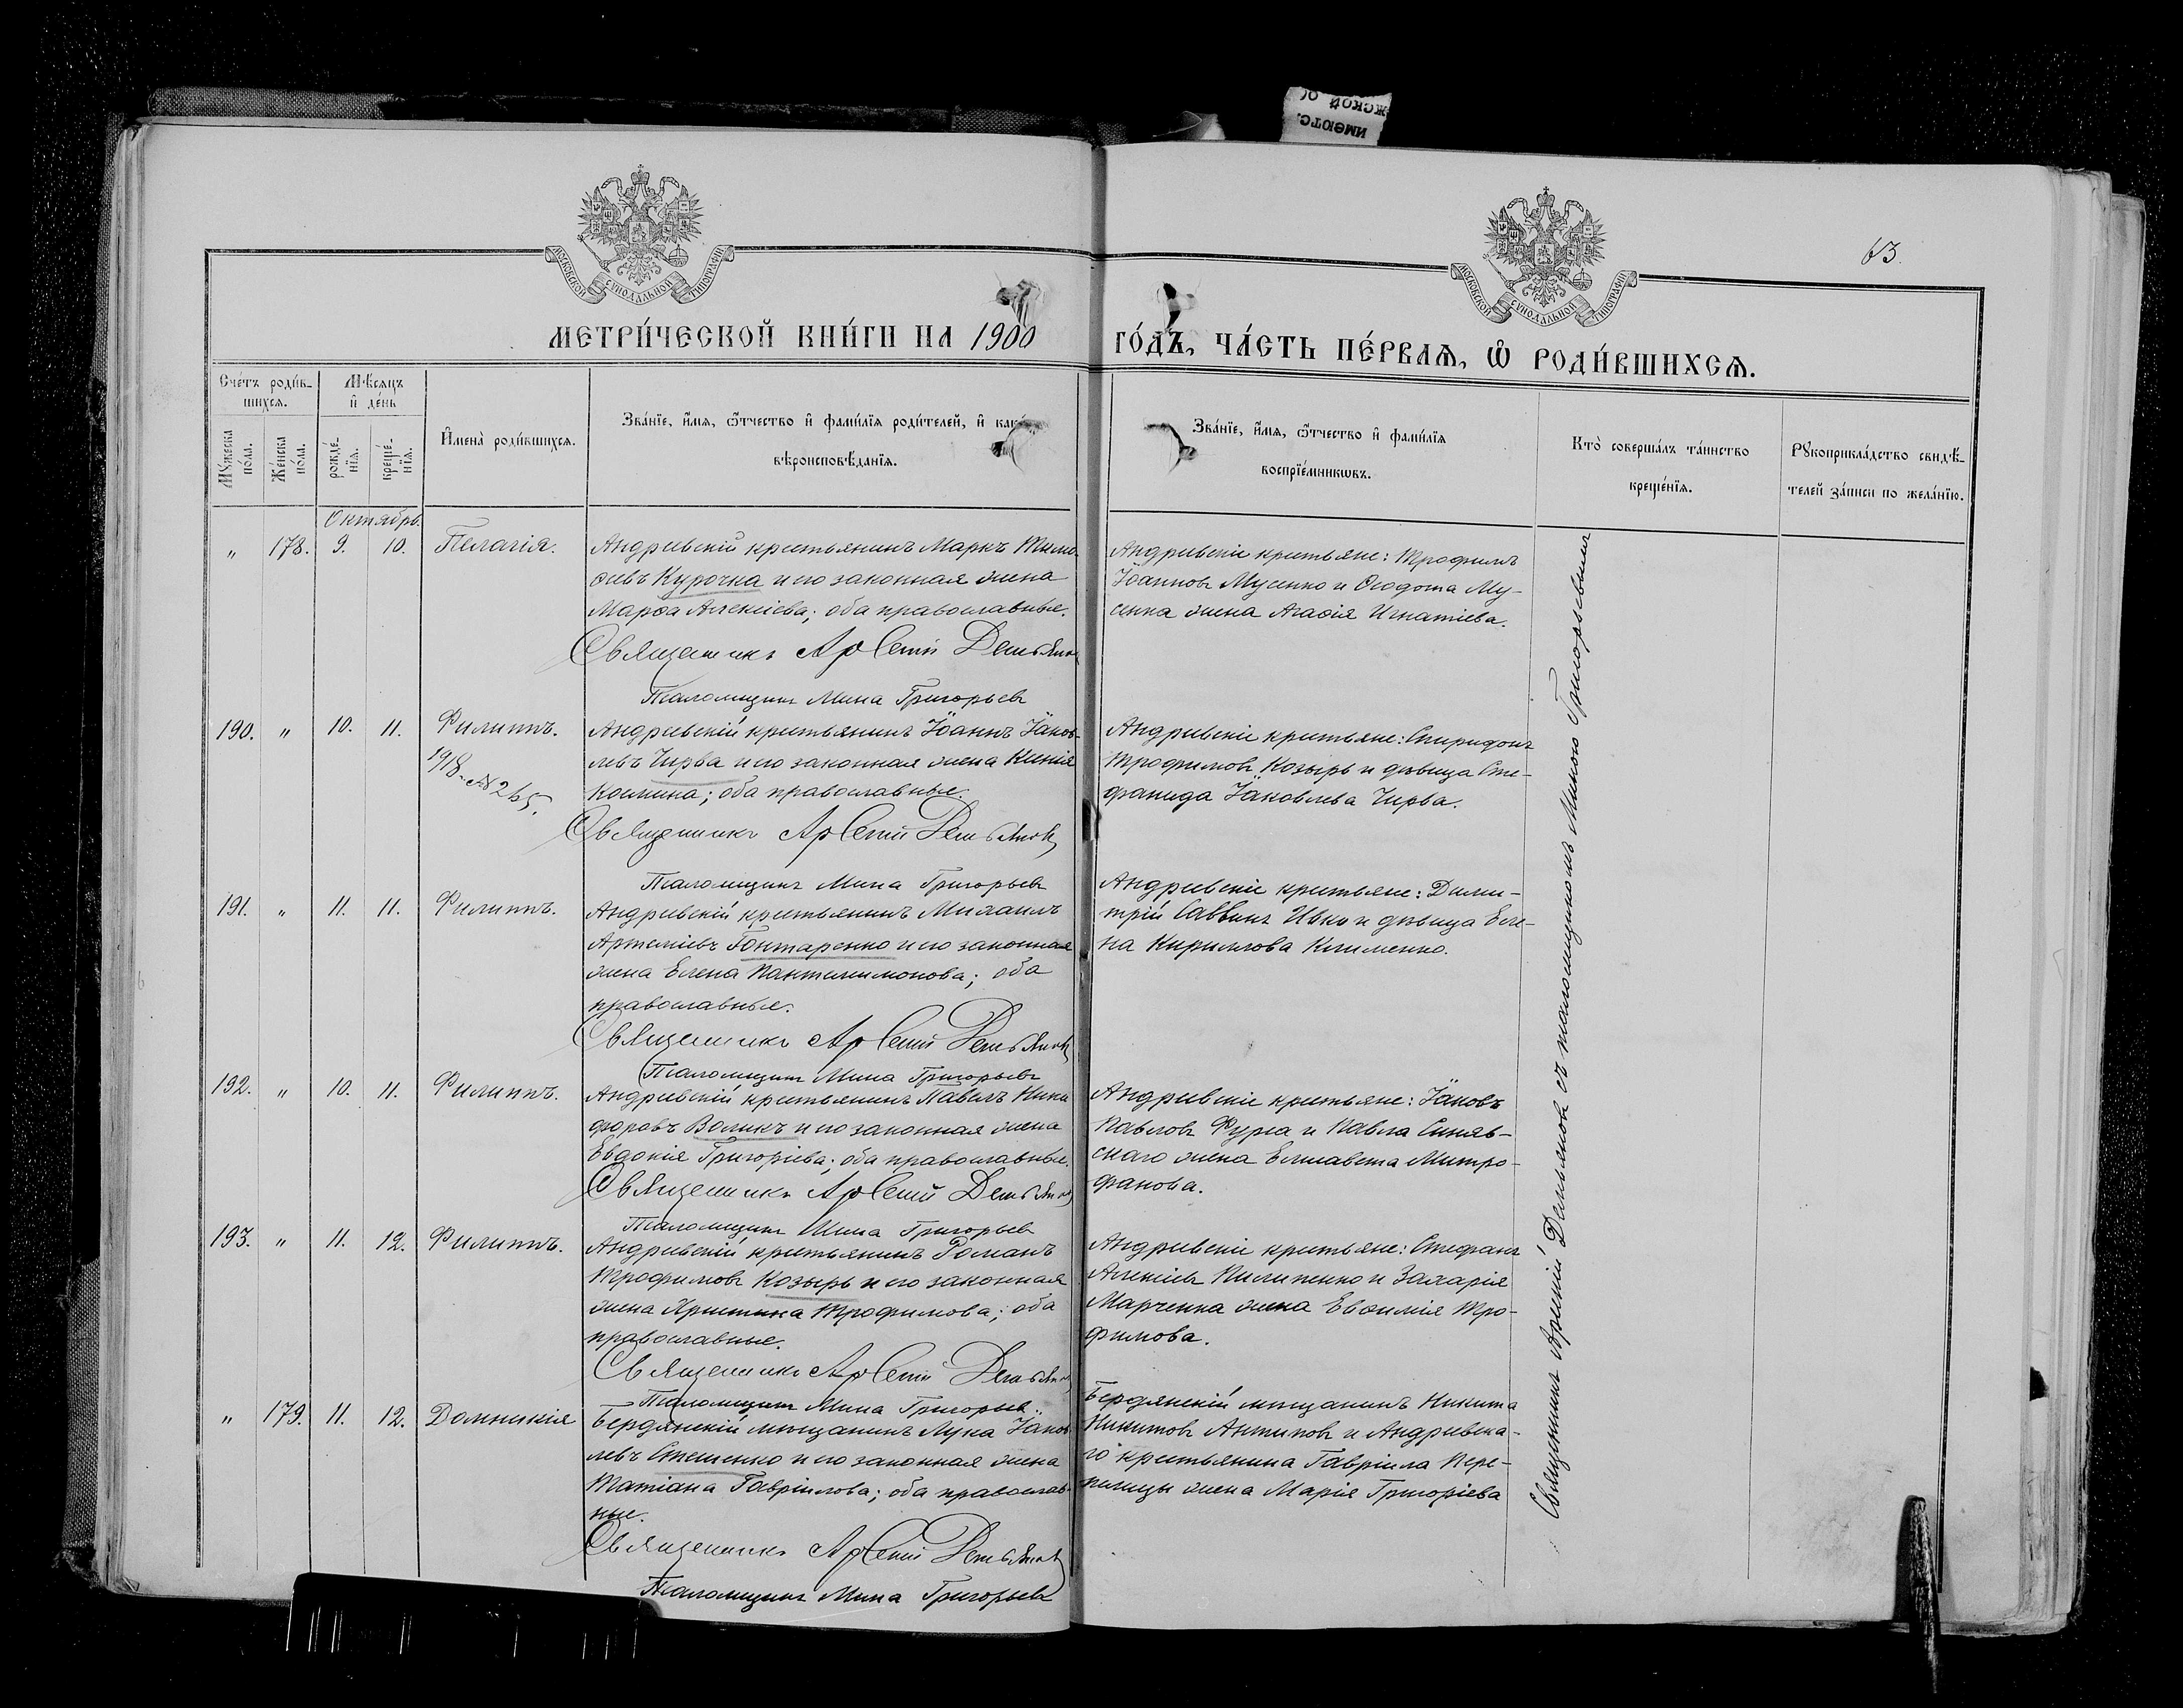 ИМѢЮТС.
ЖСКОЙ О
МОСКОВСКОЙ СѴНОДАЛЬНОЙ ТИПОГРАФІИ
МОСКОВСКОЙ СѴНОДАЛЬНОЙ ТИПОГРАФІИ
63.
МЕТРИ́ЧЕСКОЙ КНИ́ГИ НА 1900 ГО́ДЪ, ЧА́СТЬ ПЕ́РВАѦ, Ѡ҆ РОДИ́ВШИХСѦ.
Сче́тъ роди́в-
шихсѧ.
Мꙋ́жеска по́ла.
Же́нска по́ла.
Мѣ́сѧцъ
и҆ де́нь
рожде́-
нїѧ.
креще́-
нїѧ.
И҆мена̀ роди́вшихсѧ.
Зва́нїе, и҆́мѧ, ѻ҆́тчество и҆ фами́лїѧ роди́телей, и҆ как
вѣроисповѣ́данїѧ.
Зва́нїе, и҆́мѧ, ѻ҆́тчество и҆ фами́лїѧ
воспрїе́мникѡвъ.
Кто̀ соверша́лъ та́инство
креще́нїѧ.
Рꙋкоприкла́дство свидѣ́-
телей за́писи по жела́нїю.
Октябрь.
" 178. 9. 10. Пелагія.
Андреевскій крестьянинъ Маркъ Тимо-
ѳеевъ Курочка и его законная жена
Марѳа Алексіева; оба православные.
Священникъ Арсеній Демьянов
Псаломщикъ Мина Григорьев
Андреевскіе крестьяне: Трофимъ
Іоанновъ Мусенко и Ѳеодота Му-
сенка жена Агаѳія Игнатіева.
190. " 10. 11. Филиппъ.
1918. № 265.
Андреевскій крестьянинъ Іоаннъ Іаков-
левъ Чирва и его законная жена Ксенія
Космина; оба православные.
Священникъ Арсеній Демьянов
Псаломщикъ Мина Григорьев
Андреевскіе крестьяне: Спиридонъ
Трофимовъ Козырь и дѣвица Сте-
фанида Іаковлева Чирва.
191. " 11. 11. Филиппъ.
Андреевскій крестьянинъ Михаилъ
Артеміевъ Гонтаренко и его законная
жена Елена Пантелимонова; оба
православные.
Священникъ Арсеній Демьянов
Псаломщикъ Мина Григорьев
Андреевскіе крестьяне: Дими-
трій Саввинъ Ивко и дѣвица Еле-
на Кириллова Клименко.
192. " 10. 11. Филиппъ.
Андреевскій крестьянинъ Павелъ Ники
форовъ Воликъ и его законная жена
Евдокія Григоріева; оба православные.
Священникъ Арсеній Демьянов
Псаломщикъ Мина Григорьев
Андреевскіе крестьяне: Іаковъ
Павловъ Фурса и Павла Синяв-
скаго жена Елисавета Митро-
фанова.
193. " 11. 12. Филиппъ.
Андреевскій крестьянинъ Романъ
Трофимовъ Козырь и его законная
жена Христина Трофимова; оба
православные.
Священникъ Арсеній Демьянов
Псаломщикъ Мина Григорьев
Андреевскіе крестьяне: Стефанъ
Алексіевъ Пилипенко и Захарія
Марченка жена Евѳимія Тро-
фимова.
" 179. 11. 12. Домникія
Бердянскій мѣщанинъ Лука Іаков
левъ Стешенко и его законная жена
Татіана Гавріилова; оба православ-
ные.
Священникъ Арсеній Демьянов
Псаломщикъ Мина Григорьев
Бердянскій мѣщанинъ Никита
Никитовъ Антиповъ и Андреевска-
го крестьянина Гавріила Пере-
пелицы жена Марія Григоріева
Священникъ Арсеній Демьяновъ съ псаломщикомъ Миною Григорьевымъ